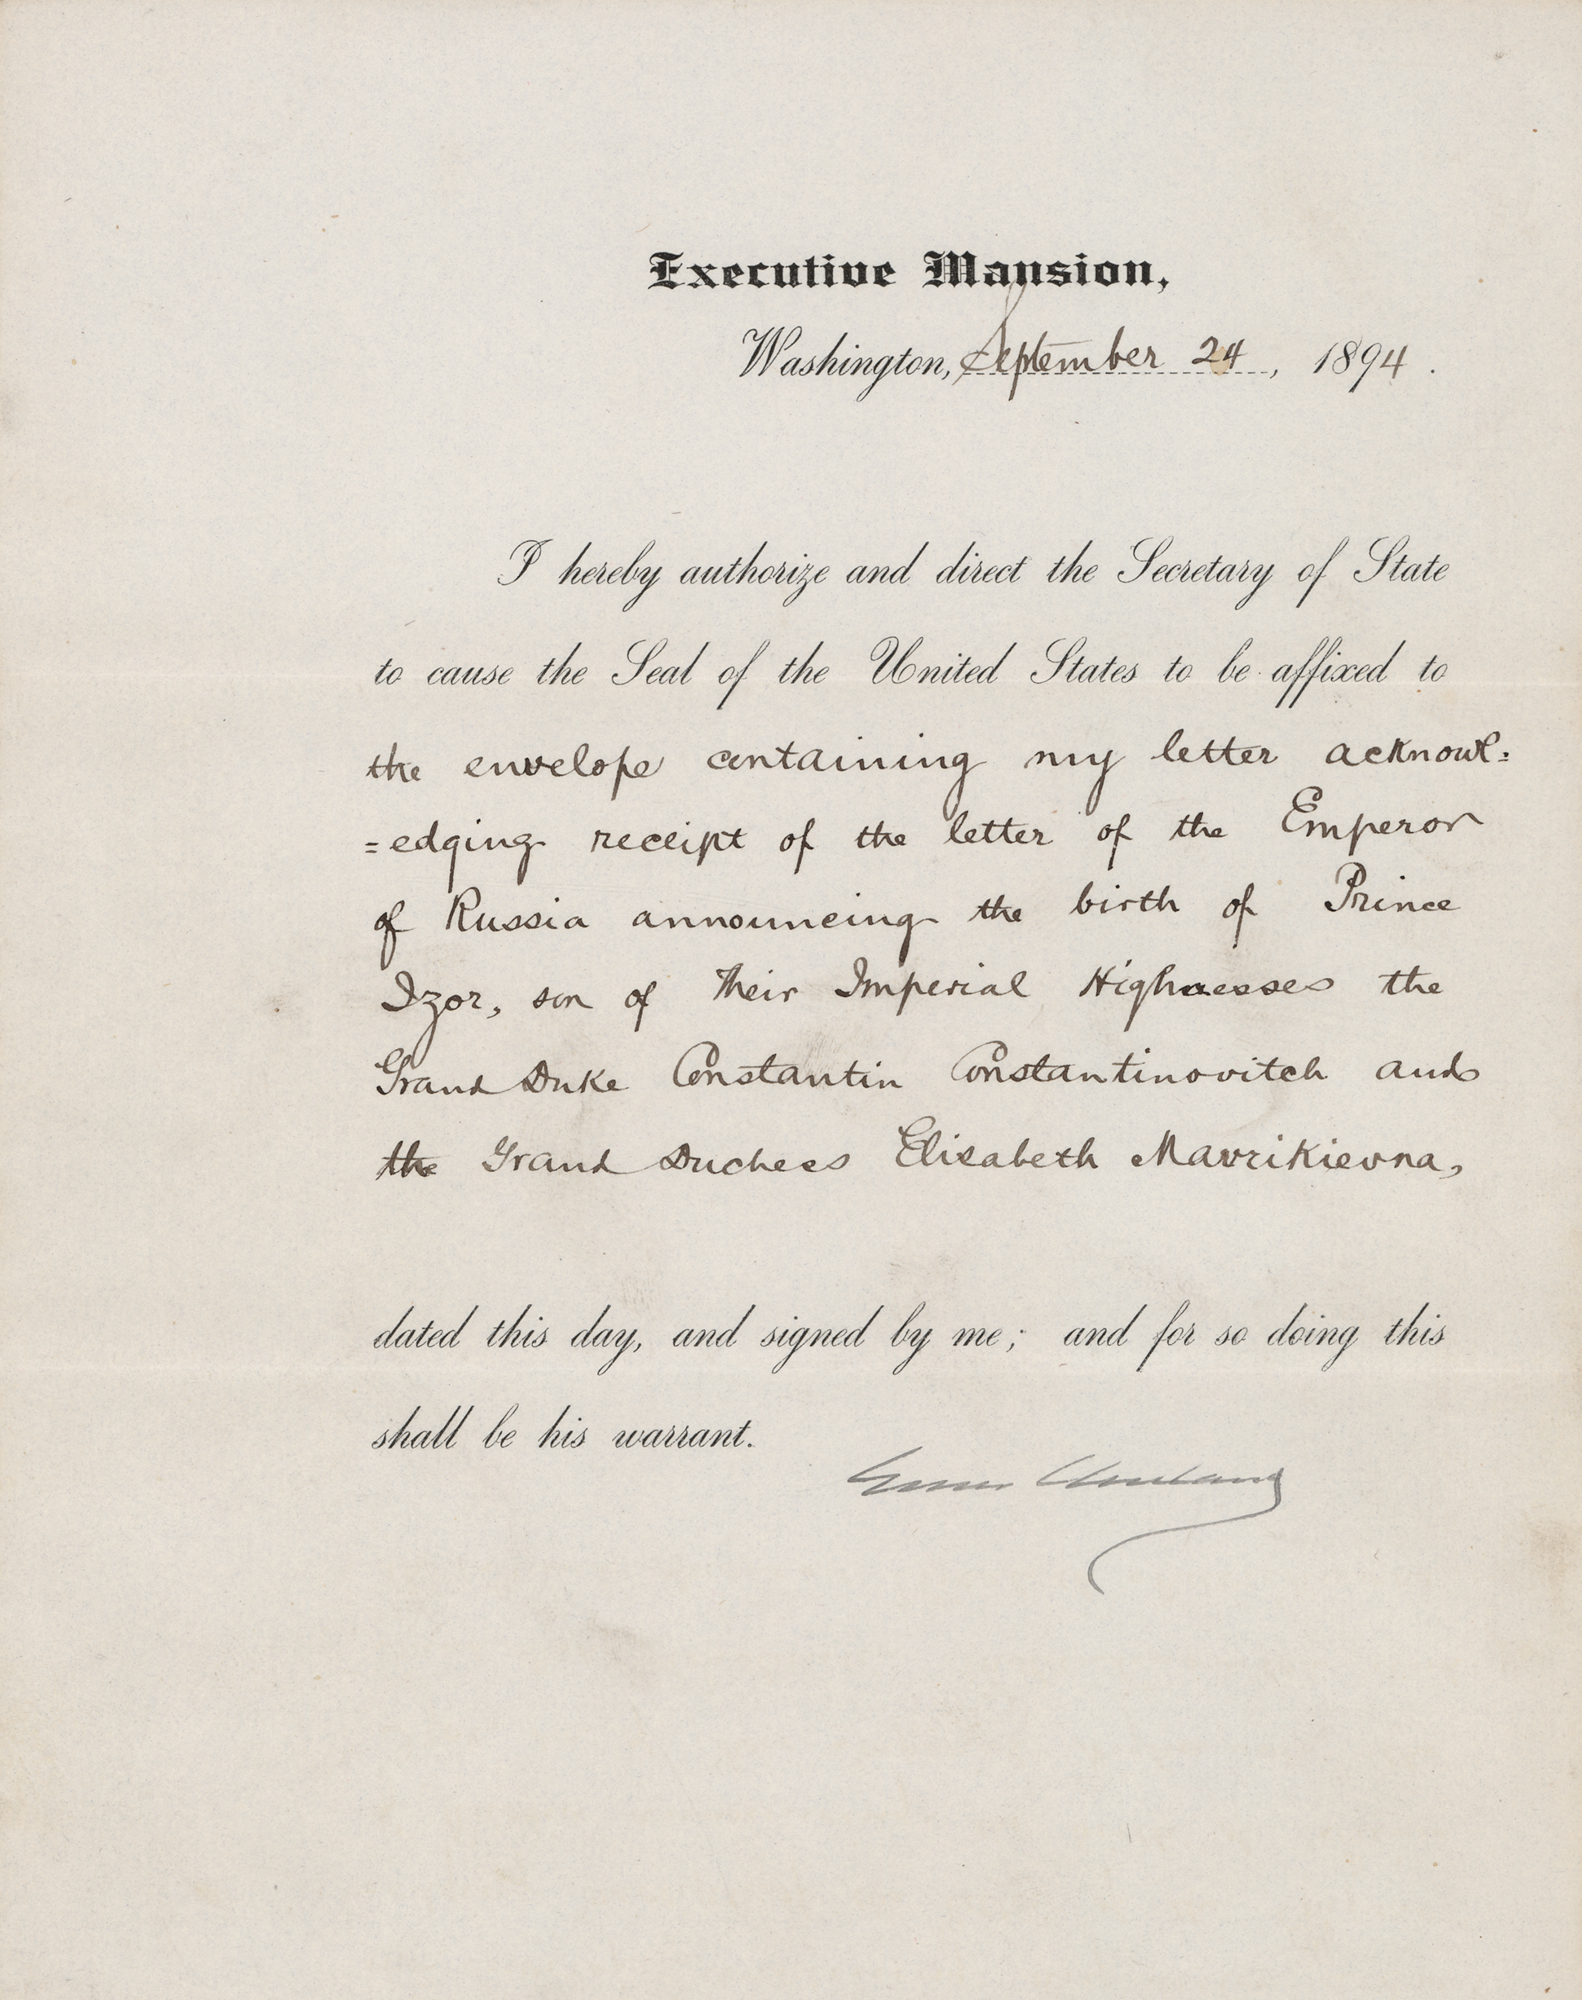 Executive Mansion,
Washington, September 24, 1894.
I hereby authorize and direct the Secretary of State
to cause the Seal of the United States to be affixed to
the envelope containing my letter acknowl=
=edging receipt of the letter of the Emperor
of Russia announcing the birth of Prince
Izor, son of Their Imperial Highnesses the
Grand Duke Constantin Constantinovitch and
the Grand Duchess Elisabeth Mavrikievna,
dated this day, and signed by me; and for so doing this
shall be his warrant.
Grover Cleveland